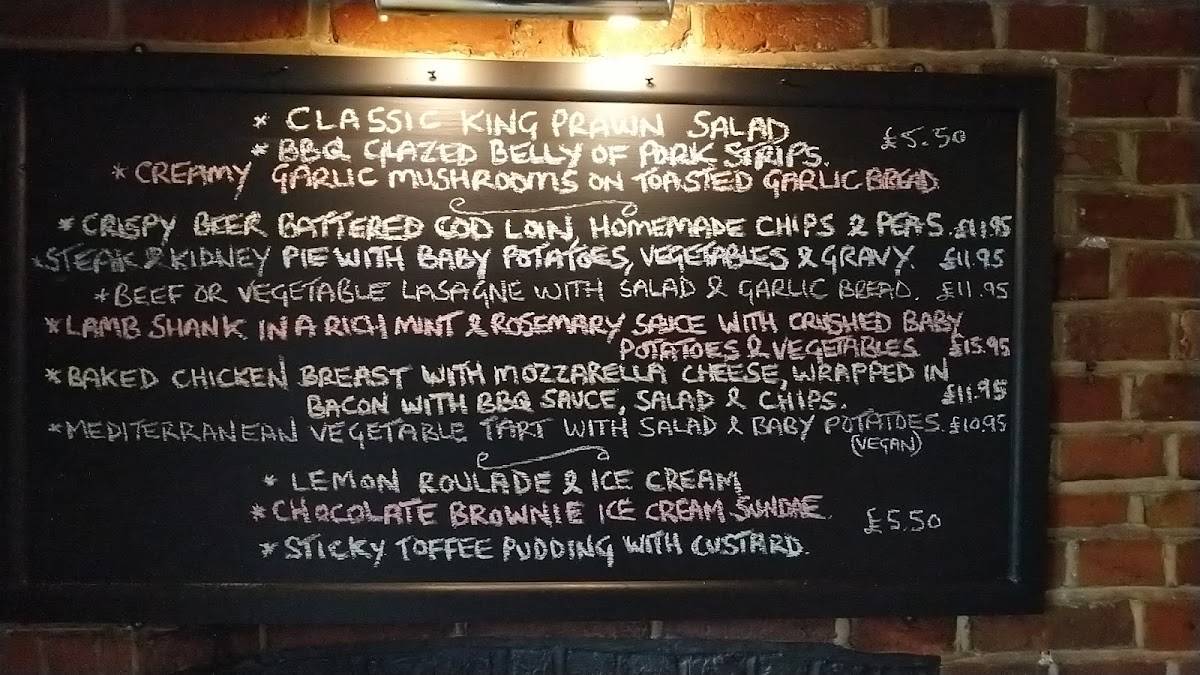 * CLASSIC KING PRAWN SALAD
* BBQ GLAZED BELLY OF PORK STRIPS. £5.50
* CREAMY GARLIC MUSHROOMS ON TOASTED GARLIC BREAD
* CRISPY BEER BATTERED COD LOIN, HOMEMADE CHIPS & PEAS. £11.95
* STEAK & KIDNEY PIE WITH BABY POTATOES, VEGETABLES & GRAVY. £11.95
* BEEF OR VEGETABLE LASAGNE WITH SALAD & GARLIC BREAD. £11.95
* LAMB SHANK IN A RICH MINT & ROSEMARY SAUCE WITH CRUSHED BABY
POTATOES & VEGETABLES £15.95
* BAKED CHICKEN BREAST WITH MOZZARELLA CHEESE, WRAPPED IN
BACON WITH BBQ SAUCE, SALAD & CHIPS. £11.95
* MEDITERRANEAN VEGETABLE TART WITH SALAD & BABY POTATOES. £10.95
(VEGAN)
* LEMON ROULADE & ICE CREAM
* CHOCOLATE BROWNIE ICE CREAM SUNDAE. £5.50
* STICKY TOFFEE PUDDING WITH CUSTARD.